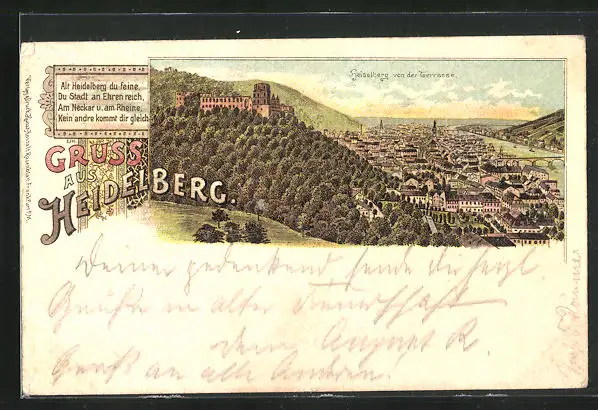 Alt Heidelberg du feine,
Du Stadt an Ehren reich,
Am Neckar u. am Rheine
Kein andre kommt dir gleich
GRUSS
AUS
HEIDELBERG.
Heidelberg von der Terrasse.
Deiner gedenkend sende dir herzl.
Grüße in alter
dein August R.
Gruß an alle Andren.